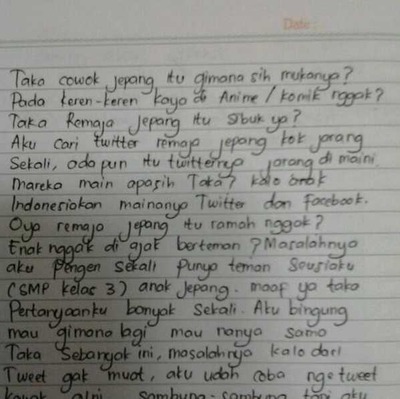 Date :
Taka cowok jepang itu gimana sih mukanya?
Pada keren-keren kaya di Anime / komik nggak?
Taka Remaja Jepang itu Sibuk ya?
Aku cari twitter remaja jepang kok jarang
Sekali, ada pun itu twitternya jarang di maini
Mareka main apasih Taka? kalo anak
Indonesiakan mainanya Twitter dan Facebook.
Oya remaja jepang itu ramah nggak?
Enak nggak di ajak berteman? Masalahnya
aku pengen sekali punya teman Seusiaku
(SMP kelas 3) anak Jepang. maaf ya taka
Pertanyaanku banyak Sekali. Aku bingung
mau gimana lagi mau nanya sama
Taka Sebanyak ini, masalahnya kalo dari
Tweet gak muat, aku udah coba nge tweet
sambung-sambung tapi aku